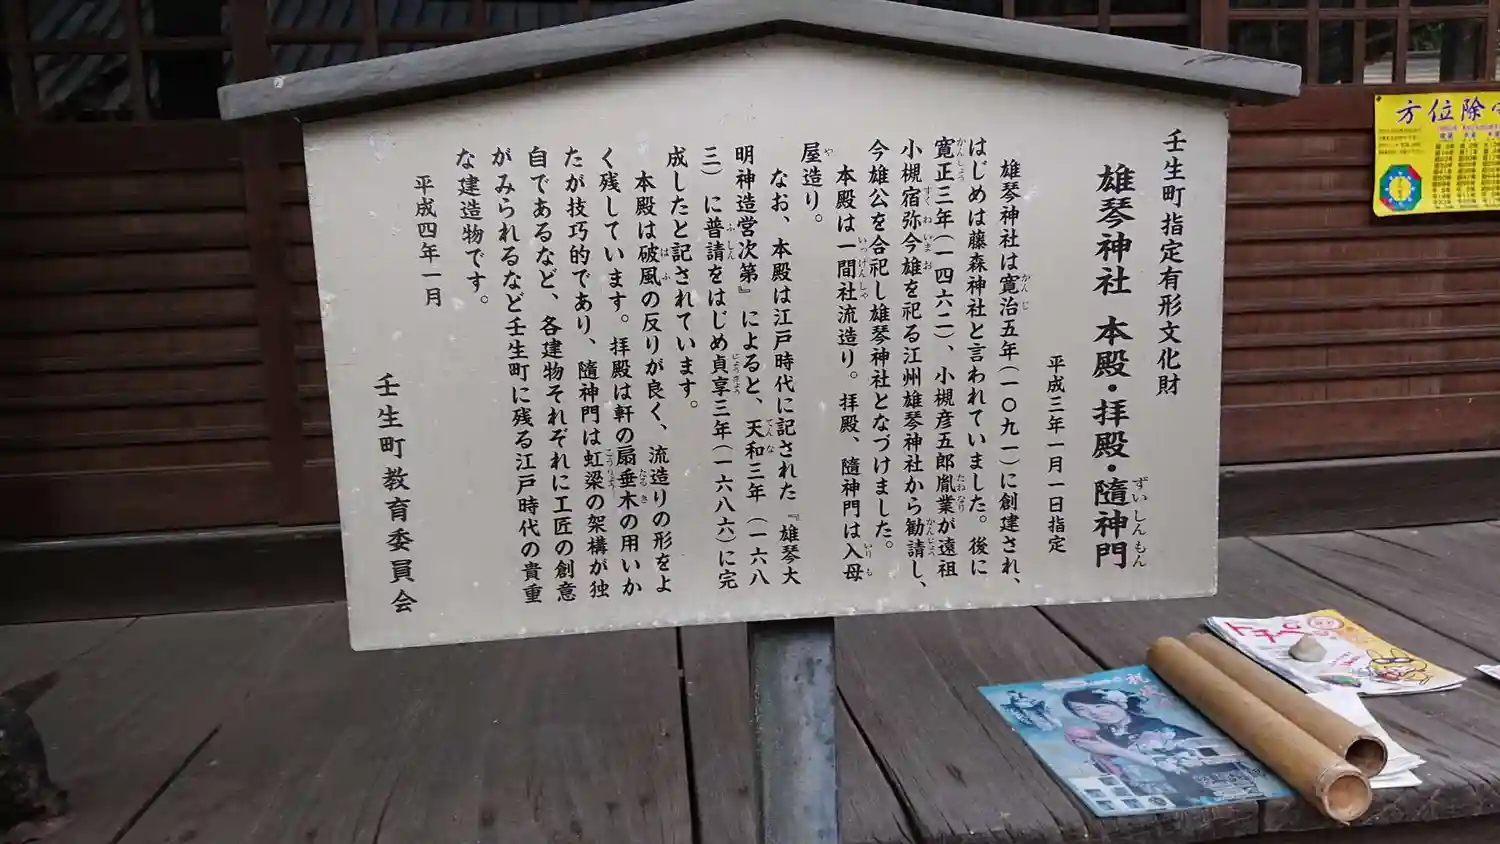 壬生町指定有形文化財
雄琴神社 本殿・拝殿・隨神門
平成三年一月一日指定
雄琴神社は寛治五年(一〇九一)に創建され、
はじめは藤森神社と言われていました。後に
寛正三年(一四六二)、小槻彦五郎胤業が遠祖
小槻宿弥今雄を祀る江州雄琴神社から勧請し、
今雄公を合祀し雄琴神社となづけました。
本殿は一間社流造り。拝殿、隨神門は入母
屋造り。
なお、本殿は江戸時代に記された『雄琴大
明神造営次第』によると、天和三年(一六八
三)に普請をはじめ貞享三年(一六八六)に完
成したと記されています。
本殿は破風の反りが良く、流造りの形をよ
く残しています。拝殿は軒の扇垂木の用いか
たが技巧的であり、隨神門は虹梁の架構が独
自であるなど、各建物それぞれに工匠の創意
がみられるなど壬生町に残る江戸時代の貴重
な建造物です。
平成四年一月
壬生町教育委員会
方位除